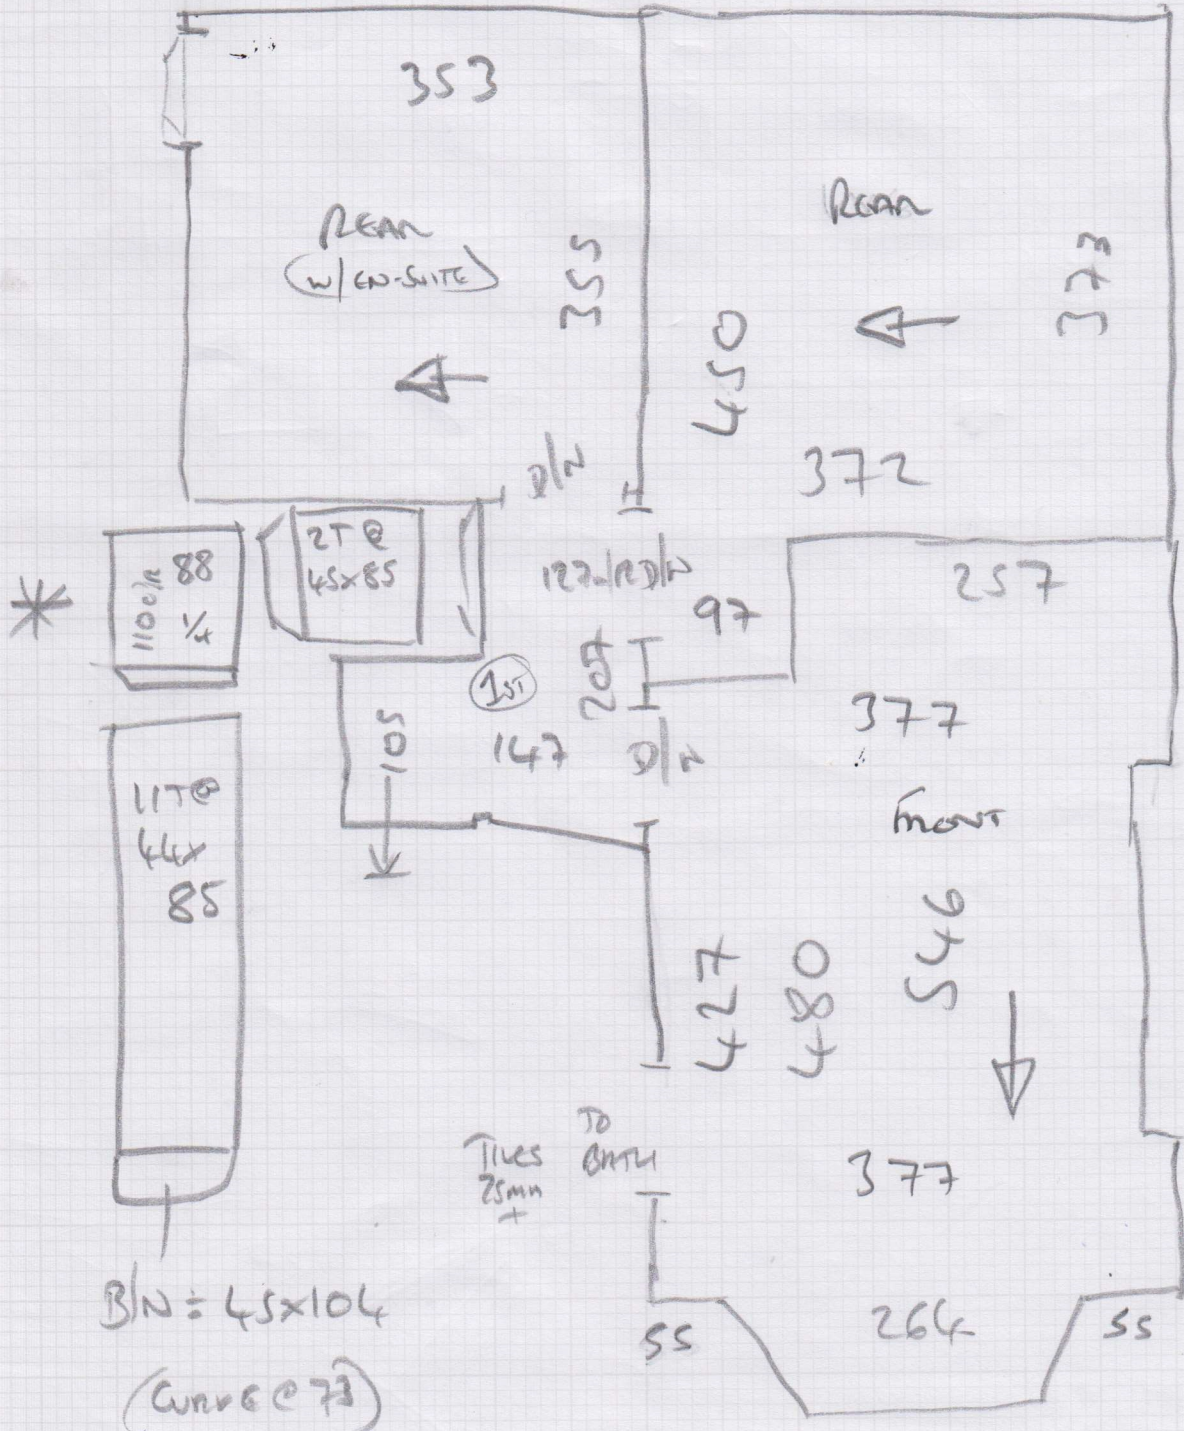 353
REAR
(W/ EN-SUITE)
355
REAR
373
450
372
D/N
2T @
45x85
88
110 d/R
1/4
127-/R D/N
97
257
205
1ST
105
147
D/N
377
FRONT
11T@
44x
85
546
427
480
TO
BATH
TILES
25mm
+
377
B/N = 45x104
(CURVE @ 73)
55
264
55